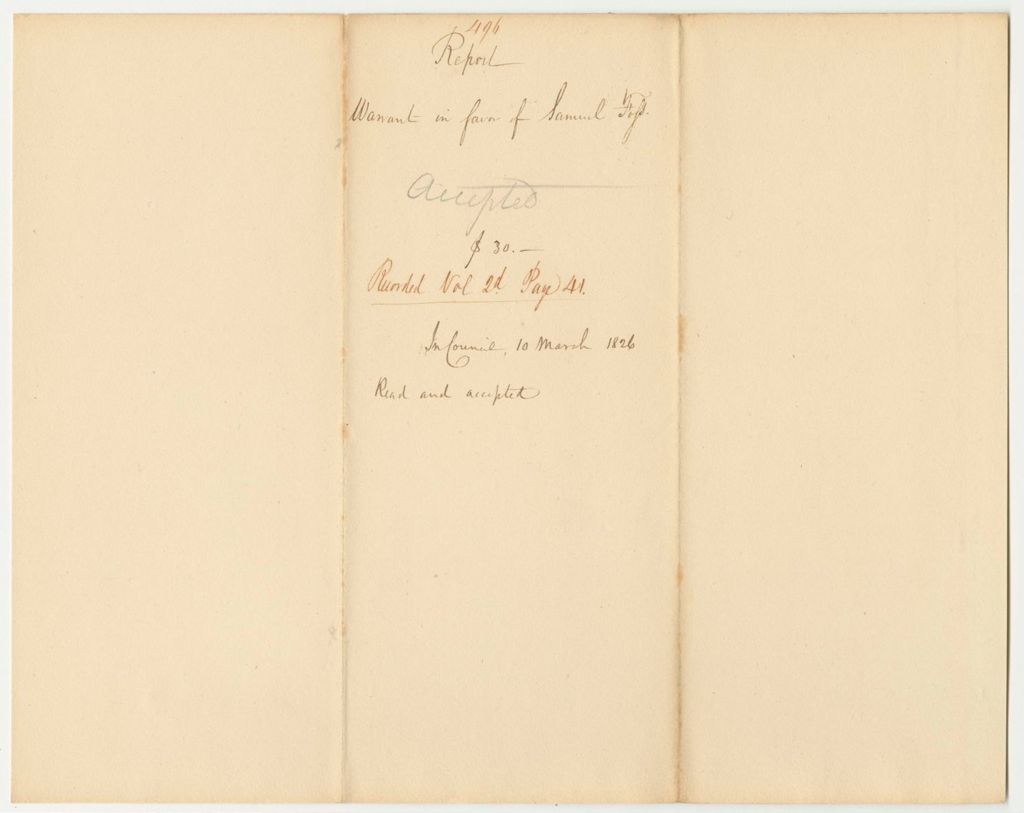 496
Report
Warrant in favor of Samuel Foss.
Accepted
$ 30.—
Recorded Vol 2d. Page 41.
In Council, 10 March 1826
Read and accepted